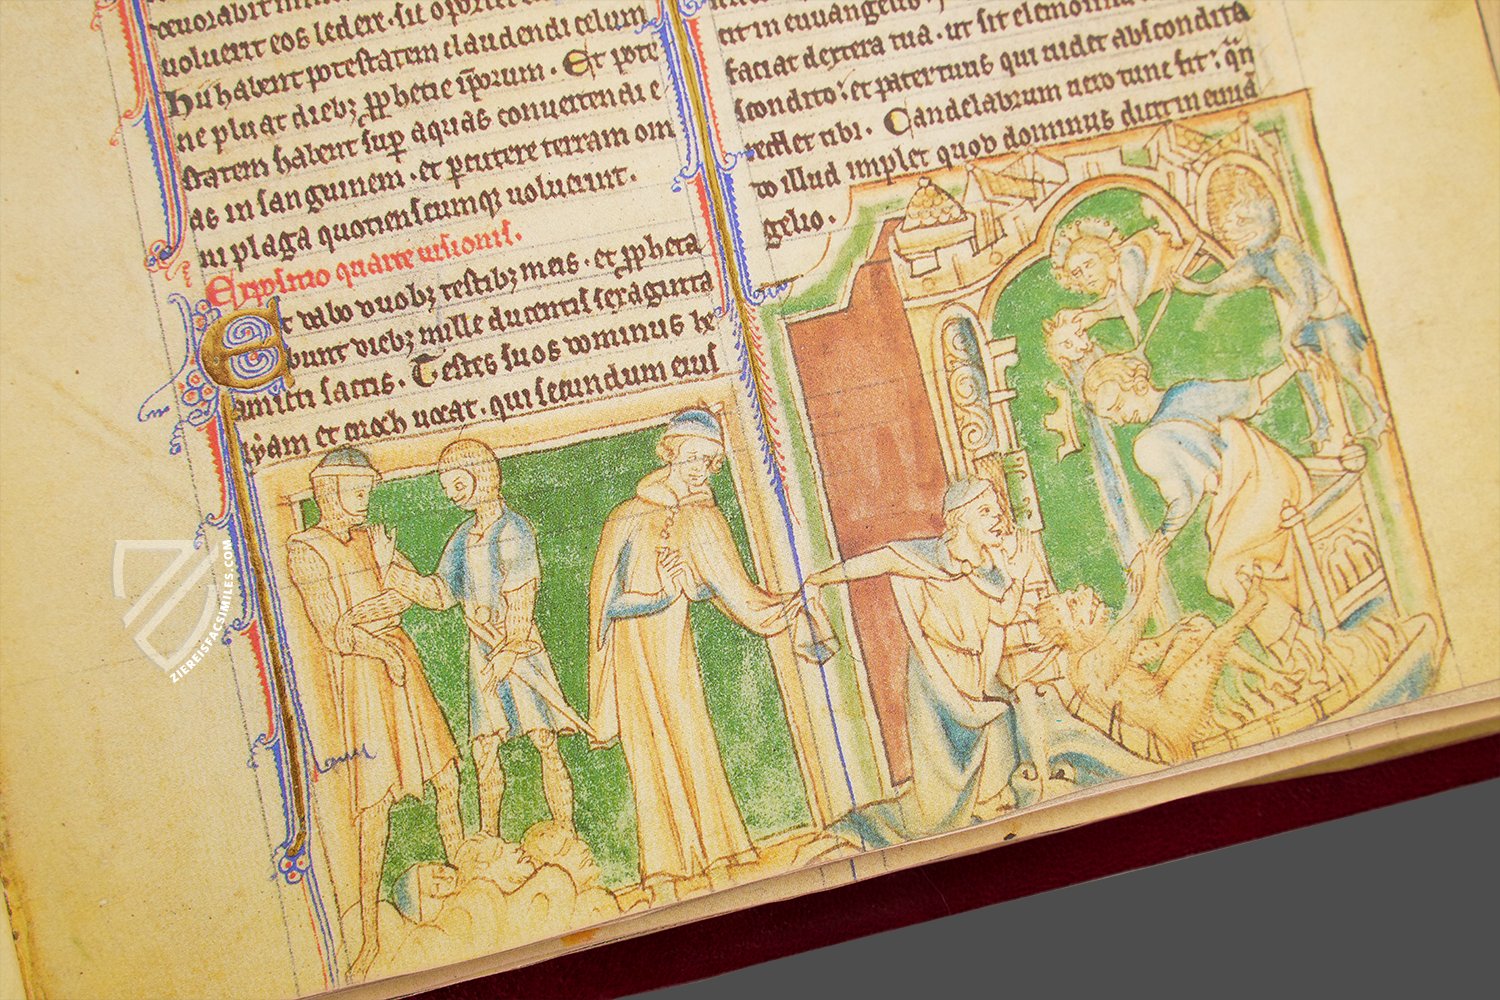 voluerit eos ledere. sit oportet
Hii habent potestatem claudendi celum
ne pluat dieb; pphetie ip̄orum. Et pote
statem habent sup aquas conuertendi e
as in sanguinem. et pcutere terram om
ni plaga quotienscumq; uoluerint.
Expositio quarte uisionis.
Et dabo duob; testib; meis. et ppheta
bunt dieb; mille ducentis sexaginta
amicti saccis. Testes suos dominus he
lyam et enoch uocat. qui secundum eius
faciat dextera tua. ut sit elemosina
scondito: et pater tuus qui uidet abscondita
reddet tibi. Candelabrum uero tunc fit: qn̄
to illud implet quod dominus dicit in euuā
gelio.
ZIEREISFACSIMILES.COM